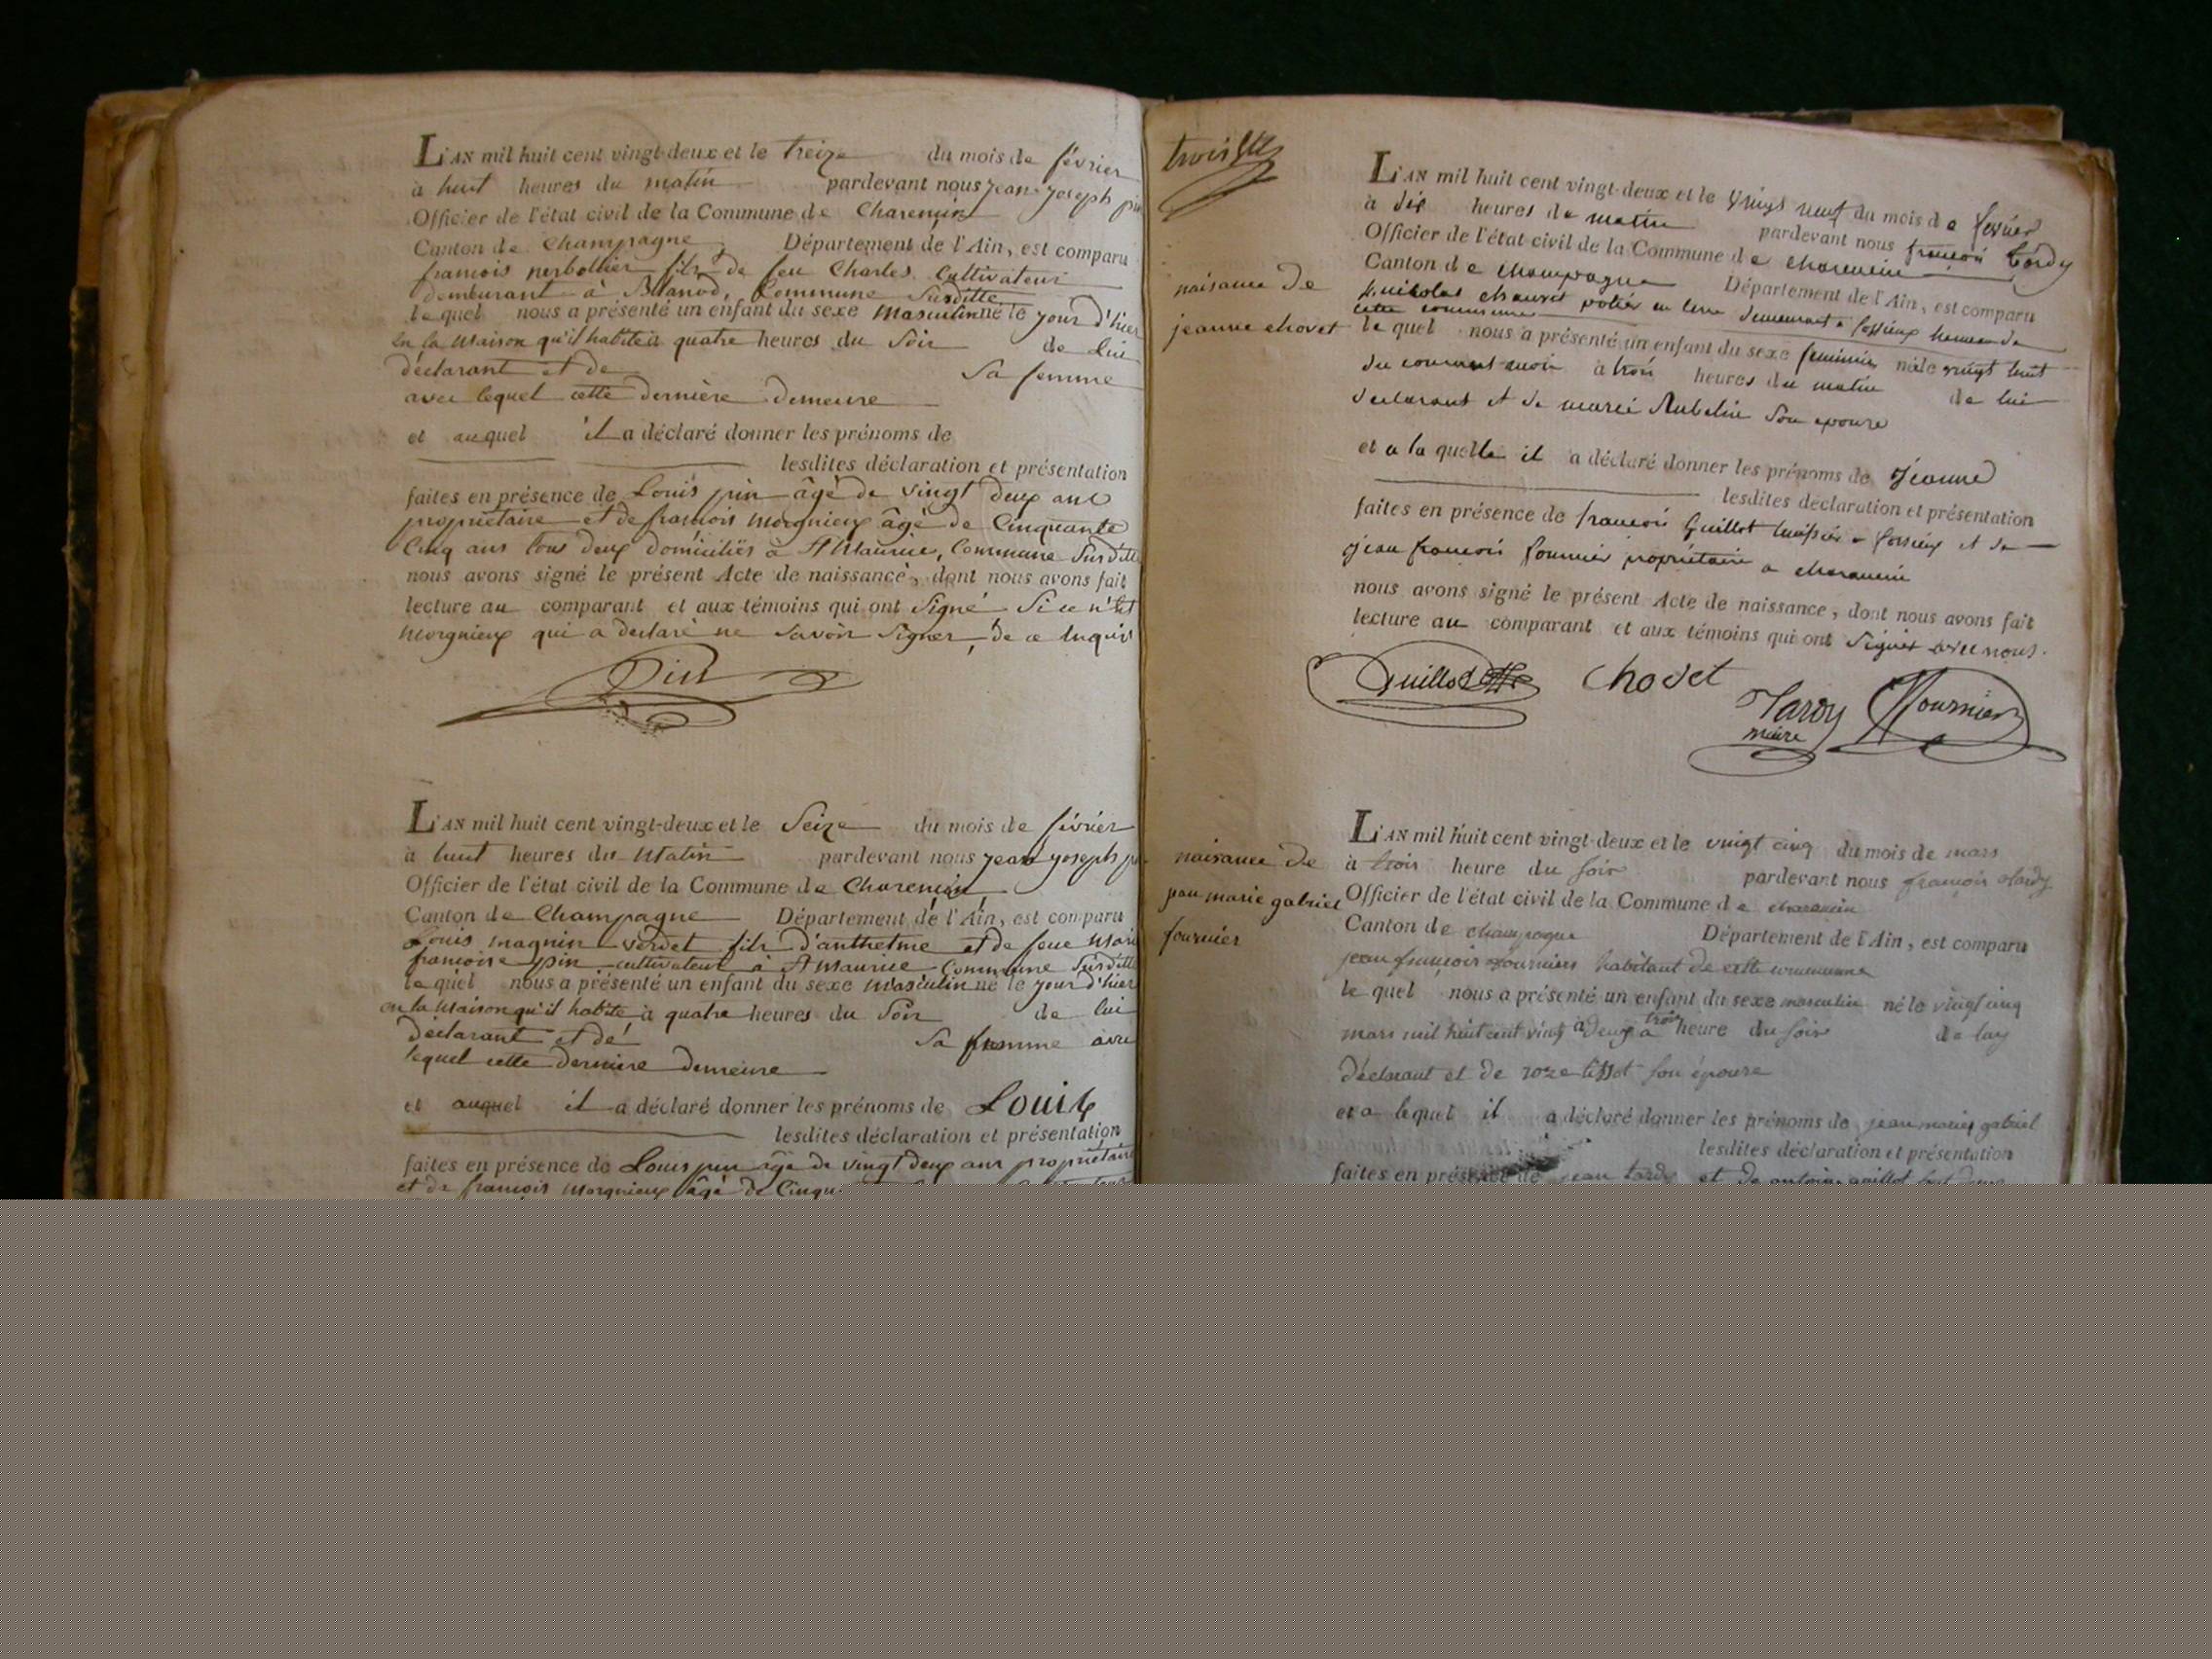 L'AN mil huit cent vingt-deux et le treize du mois de février
à huit heures du matin pardevant nous jean joseph
Officier de l'état civil de la Commune de Charencin
Canton de Champagne Département de l'Ain, est comparu
francois perbollier fils de feu Charles Cultivateur
demeurant à Commune Susditte
lequel nous a présenté un enfant du sexe Masculin né le jour d'hier
en la Maison qu'il habite à quatre heures du Soir de lui
déclarant et de Sa femme
avec lequel cette dernière demeure
et auquel il a déclaré donner les prénoms de
lesdites déclaration et présentation
faites en présence de Louis pin âgé de vingt deux ans
propriétaire et de francois Morgnieux âgé de Cinquante
Cinq ans tous deux domiciliés à St Maurice, Commune Susditte
nous avons signé le présent Acte de naissance, dont nous avons fait
lecture au comparant et aux témoins qui ont Signé Si ce n'est
Morgnieux qui a declaré ne Savoir Signer, de ce Inquis
Pin
L'AN mil huit cent vingt-deux et le Seize du mois de février
à huit heures du Matin pardevant nous jean joseph
Officier de l'état civil de la Commune de Charencin
Canton de Champagne Département de l'Ain, est comparu
Louis magnin verdet fils d'anthelme et de feue Marie
francoise pin cultivateur à St Maurice Commune Susditte
lequel nous a présenté un enfant du sexe Masculin né le jour d'hier
en la Maison qu'il habite à quatre heures du Soir de lui
déclarant et de Sa femme avec
lequel cette derniere demeure
et auquel il a déclaré donner les prénoms de Louis
lesdites déclaration et présentation
faites en présence de Louis pin âgé de vingt deux ans propriétaire
et de francois Morgnieux âgé de Cinqu
trois
naisance de
jeanne chovet
L'AN mil huit cent vingt-deux et le vingt neuf du mois de fevrier
à dix heures de matin pardevant nous françois tardy
Officier de l'état civil de la Commune de charencin
Canton de champagne Département de l'Ain, est comparu
nicolas chauvet potier en terre demeurant a fossieux hameau de
cette commune
le quel nous a présenté un enfant du sexe feminin né le vingt huit
du courant mois à trois heures du matin de lui
declarant et de marie Aubelin son epouse
et a la quelle il a déclaré donner les prénoms de jeanne
lesdites déclaration et présentation
faites en présence de francois Guillot huissier a fossieux et de
jean francois fournier propriétaire a charancin
nous avons signé le présent Acte de naissance, dont nous avons fait
lecture au comparant et aux témoins qui ont signés avec nous.
Guillot Chovet
Tardy maire Fournier
naisance de
jean marie gabriel
fournier
L'AN mil huit cent vingt-deux et le vingt cinq du mois de mars
à trois heure du soir pardevant nous françois tardy
Officier de l'état civil de la Commune de charancin
Canton de champagne Département de l'Ain, est comparu
jean françois fournier habitant de cette commune
le quel nous a présenté un enfant du sexe masculin né le vingt cinq
mars mil huit cent vingt deux à trois heure du soir de luy
déclarant et de roze tissot son épouse
et a lequel il a déclaré donner les prénoms de jean marie gabriel
lesdites déclaration et présentation
faites en présence de jean tardy et de antoine guillot tout deux